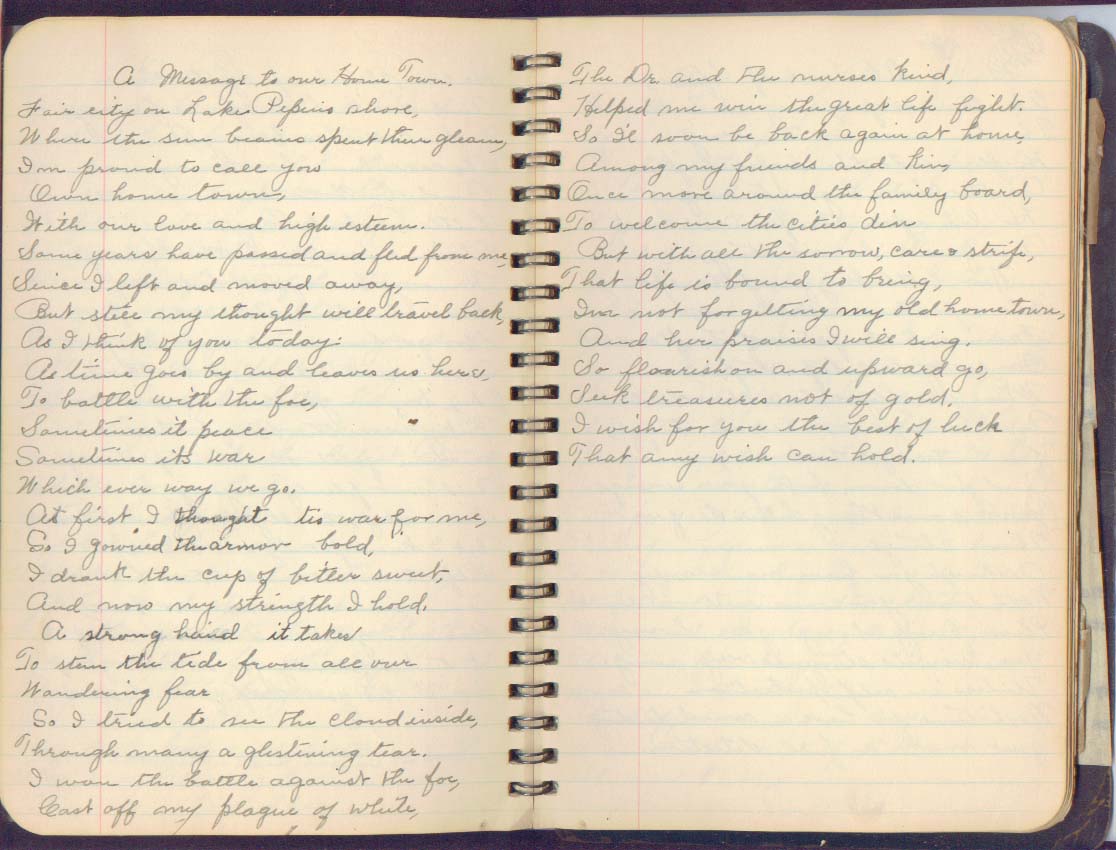 A Message to our Home Town.
Fair city on Lake Pepins shore,
Where the sun beams spent their gleam,
I'm proud to call you
Own home town,
With our love and high esteem.
Some years have passed and fled from me,
Since I left and moved away,
But still my thought will travel back,
As I think of you today:
As time goes by and leaves us here,
To battle with the foe,
Sometimes it peace
Sometimes its war
Which ever way we go.
At first I thought tis war for me,
So I gowned the armor bold,
I drank the cup of bitter sweet,
And now my strength I hold.
A strong hand it takes
To stem the tide from all our
Wandering fear
So I tried to see the cloud inside,
Through many a glistening tear.
I won the battle against the foe,
Cast off my plague of white,
The Dr. and the nurses kind,
Helped me win the great life fight.
So I'l soon be back again at home,
Among my friends and kin,
Once more around the family board,
To welcome the cities din
But with all the sorrow, care & strife,
That life is bound to bring,
I'm not forgetting my old home town,
And her praises I will sing.
So flourish on and upward go,
Seek treasures not of gold.
I wish for you the best of luck
That amy wish can hold.